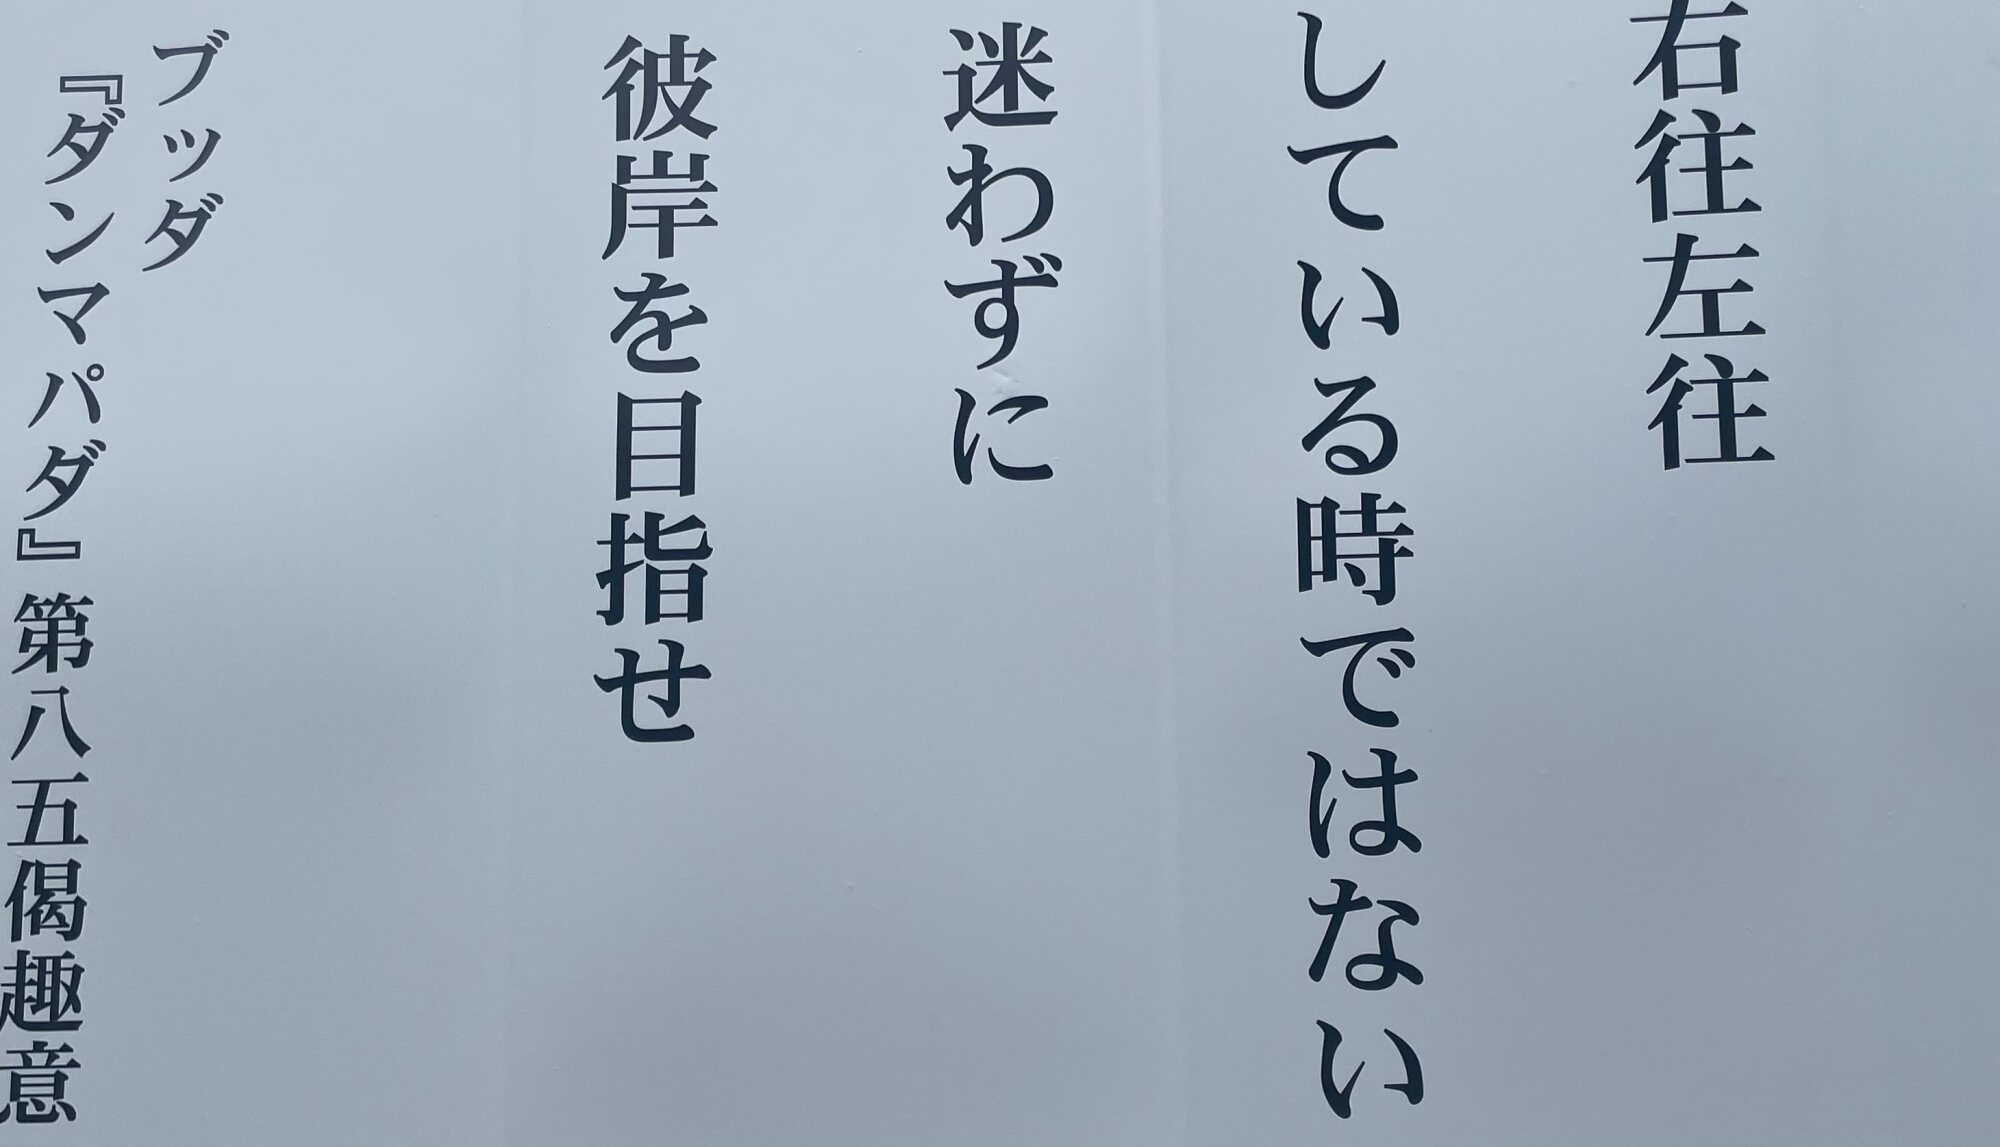 右往左往
している時ではない
迷わずに
彼岸を目指せ
ブッダ
『ダンマパダ』第八五偈趣意